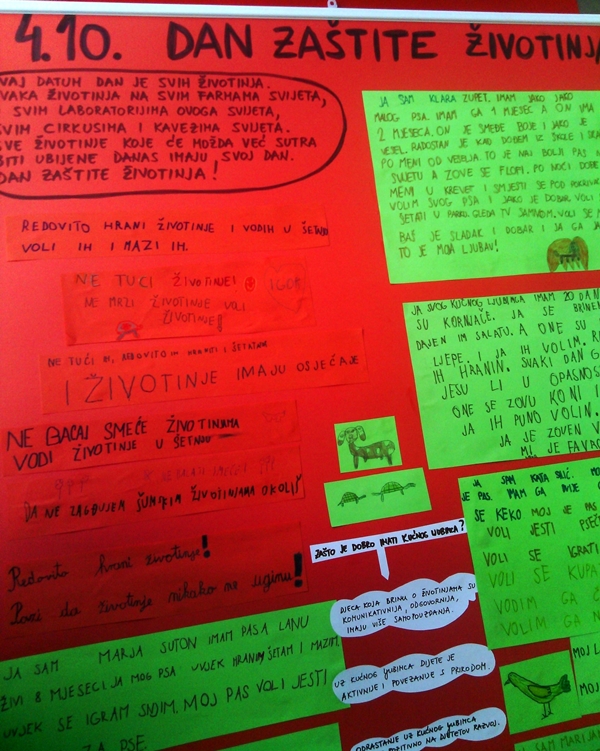 4.10. DAN ZAŠTITE ŽIVOTINJA
VAJ DATUM DAN JE SVIH ŽIVOTINJA.
VAKA ŽIVOTINJA NA SVIH FARMAMA SVIJETA,
SVIM LABORATORIJIMA OVOGA SVIJETA,
SVIM CIRKUSIMA I KAVEZIMA SVIJETA.
SVE ŽIVOTINJE KOJE ĆE MOŽDA VEĆ SUTRA
BITI UBIJENE DANAS IMAJU SVOJ DAN.
DAN ZAŠTITE ŽIVOTINJA!
REDOVITO HRANI ŽIVOTINJE I VODIH U ŠETNJU
VOLI IH I MAZI IH.
NE TUCI ŽIVOTINJE! IGOR
NE MRZI ŽIVOTINJE VOLI
ŽIVOTINJE!
NE TUČI IH, REDOVITO IH HRANI I ŠETAJIH
I ŽIVOTINJE IMAJU OSJEĆAJE
NE BACAJ SMEĆE ŽIVOTINJAMA
VODI ŽIVOTINJE U ŠETNJU
DA NE ZAGAĐUJEM ŠUMSKIM ŽIVOTINJAMA OKOLIŠ
Redovito hrani životinje!
Pazi da životinje nikako ne uginu!
JA SAM MARJA SUTON IMAM PASA LANU
ŽIVI 8 MJESECI JA MOG PSA UVJEK HRANIM, ŠETAM I MAZIM.
UVJEK SE IGRAM S NJIM. MOJ PAS VOLI JESTI
ZA PSE.
JA SAM KLARA ZUPET. IMAM JAKO JAKO
MALOG PSA. IMAM GA 1 MJESEC A ON IMA
2 MJESECA. ON JE SMEĐE BOJE I JAKO JE
VESEL. RADOSTAN JE KAD DOĐEM IZ ŠKOLE I SKAČE
PO MENI OD VESELJA. TO JE NAJ BOLJI PAS NA
SVIJETU A ZOVE SE FLOPI. PO NOĆI DOĐE
MENI U KREVET I SMJESTI SE POD POKRIVAČ
VOLIM SVOG PSA I JAKO JE DOBAR. VOLI SE
ŠETATI U PARKU. GLEDA TV SAMNOM. VOLI SE
BAŠ JE SLADAK I DOBAR I JA GA
TO JE MOJA LJUBAV!
JA SVOG KUĆNOG LJUBIMCA IMAM 20 DANA
SU KORNJAČE. JA SE BRINEM
DAJEM IM SALATU. A ONE SU
LJEPE. I JA IH VOLIM.
IH HRANIM. SVAKI DAN
JESU LI U OPASNOS
ONE SE ZOVU KONI I
JA IH PUNO VOLIM.
JA JE ZOVEM
MI JE
JA SAM KATA
JE PAS. IMAM GA DVIJE
SE KEKO MOJ JE PAS
VOLI JESTI
VOLI SE IGRATI
VOLI SE KUPA
VODIM GA
VOLIM GA
ZAŠTO JE DOBRO IMATI KUĆNOG LJUBIMCA?
DJECA KOJA BRINU O ŽIVOTINJAMA SU
KOMUNIKATIVNIJA, ODGOVORNIJA,
IMAJU VIŠE SAMOPOUZDANJA.
UZ KUĆNOG LJUBIMCA DIJETE JE
AKTIVNIJE I POVEZANIJE S PRIRODOM.
ODRASTANJE UZ KUĆNOG LJUBIMCA
POZITIVNO NA DJETETOV RAZVOJ.
MOJ
MOJ
SAM MARIJA